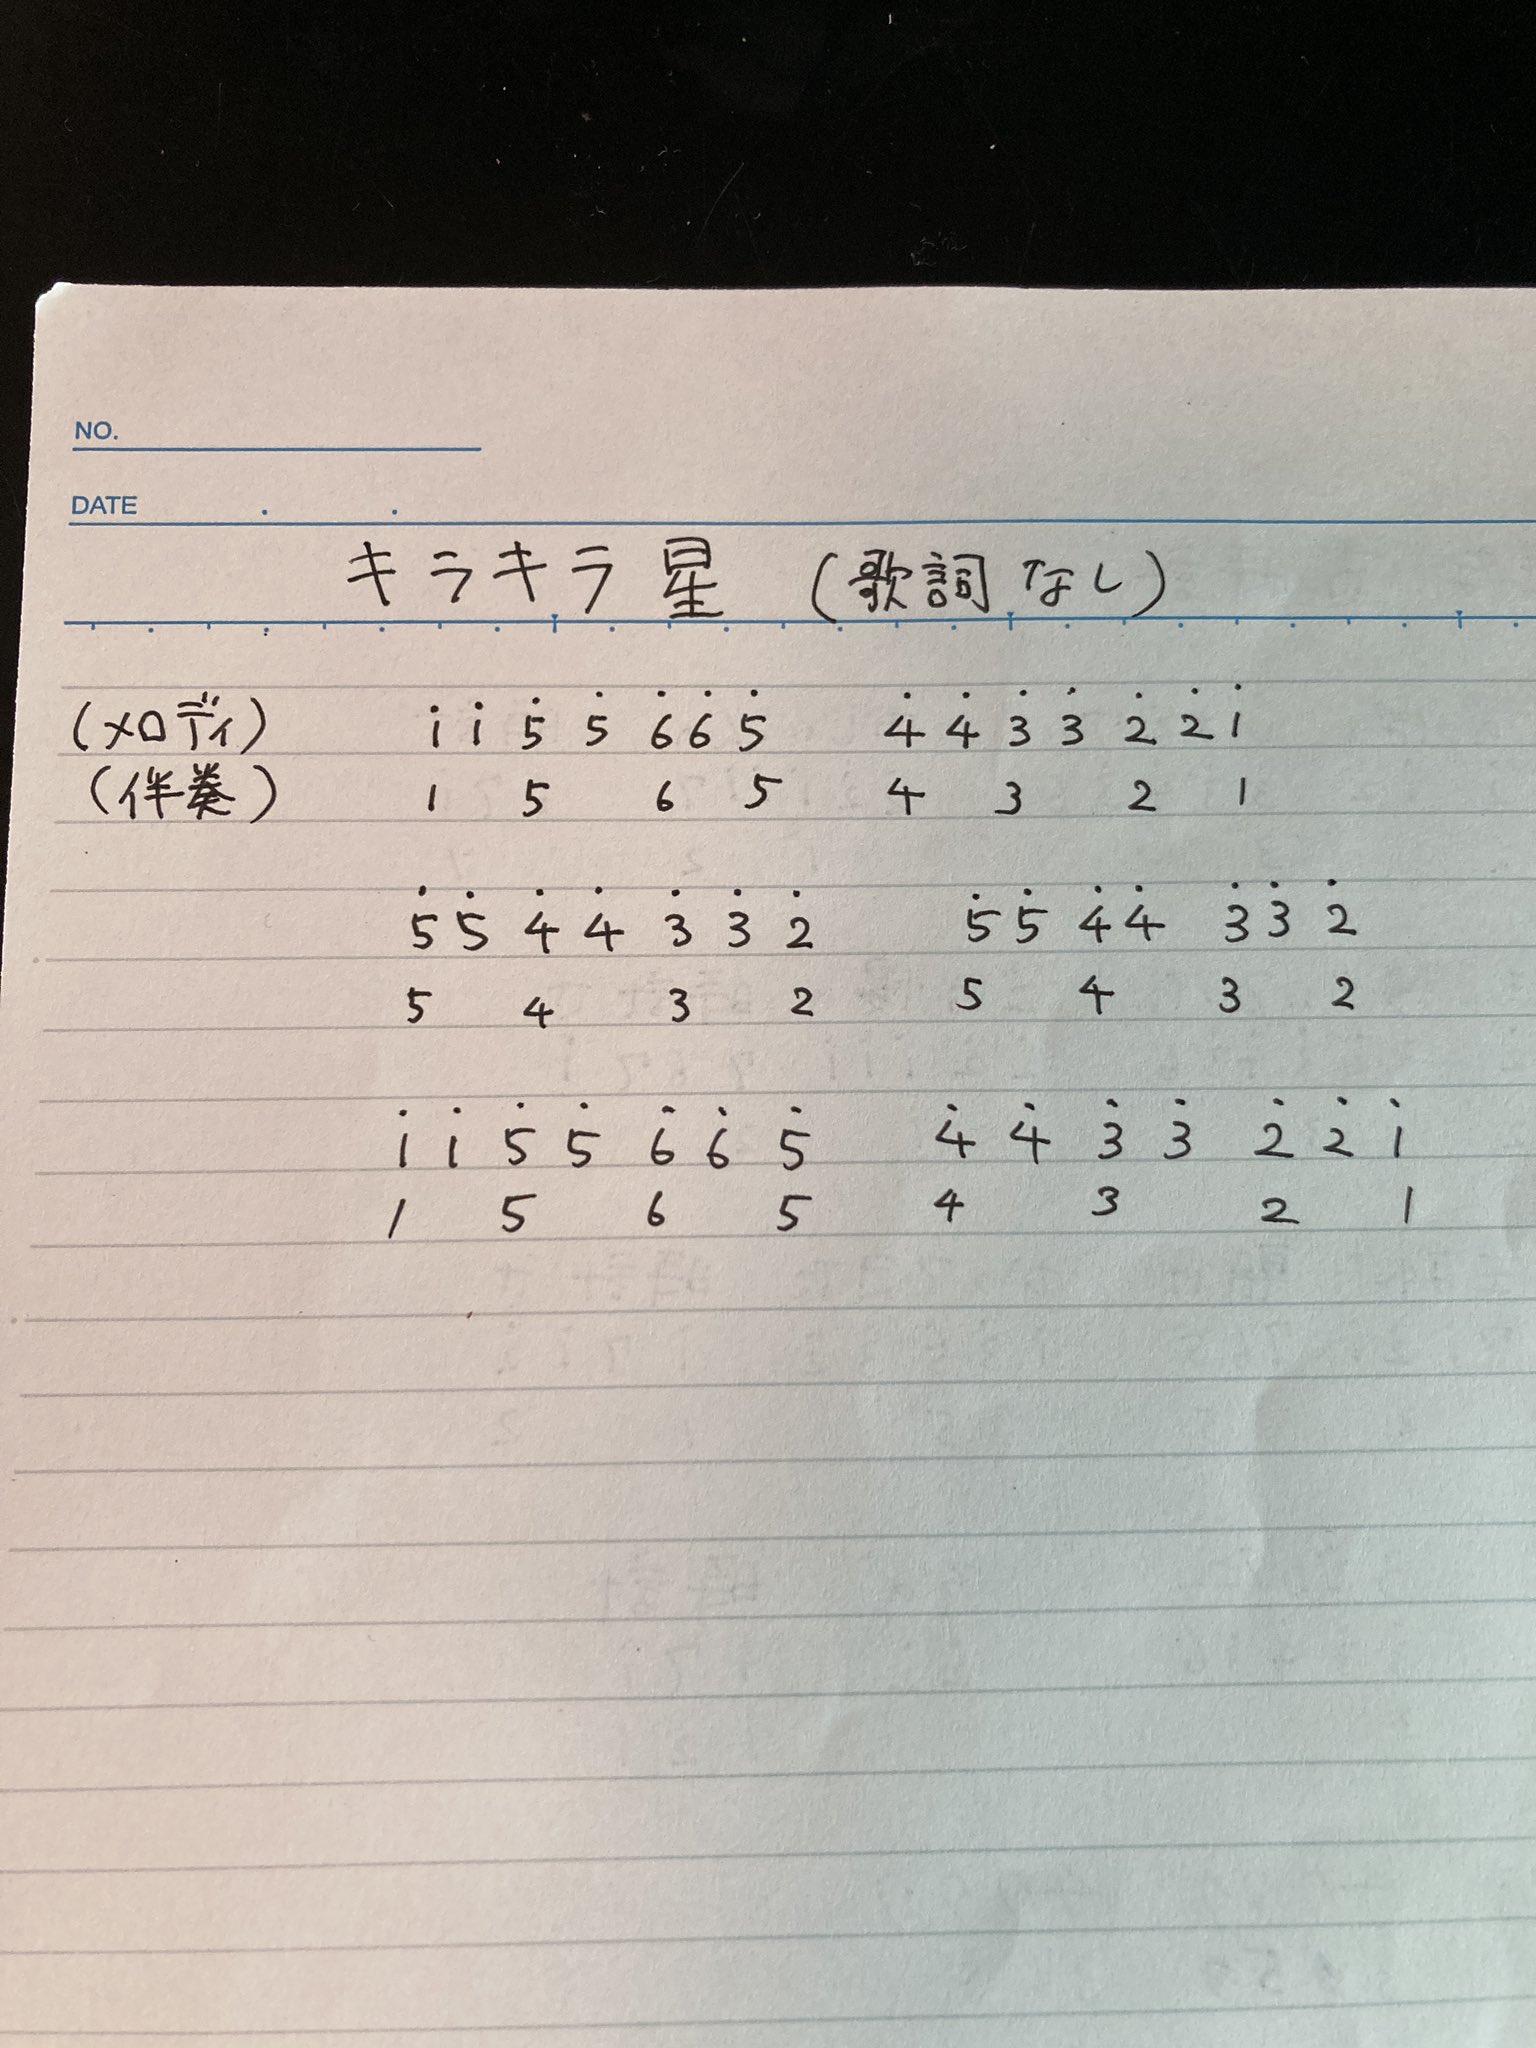 NO.
DATE . .
キラキラ星 (歌詞なし)
(メロディ) i̇ i̇ 5̇ 5̇ 6̇ 6̇ 5̇ 4̇ 4̇ 3̇ 3̇ 2̇ 2̇ 1̇
(伴奏) 1 5 6 5 4 3 2 1
5̇ 5̇ 4̇ 4̇ 3̇ 3̇ 2̇ 5̇ 5̇ 4̇ 4̇ 3̇ 3̇ 2̇
5 4 3 2 5 4 3 2
1̇ 1̇ 5̇ 5̇ 6̇ 6̇ 5̇ 4̇ 4̇ 3̇ 3̇ 2̇ 2̇ 1̇
1 5 6 5 4 3 2 1